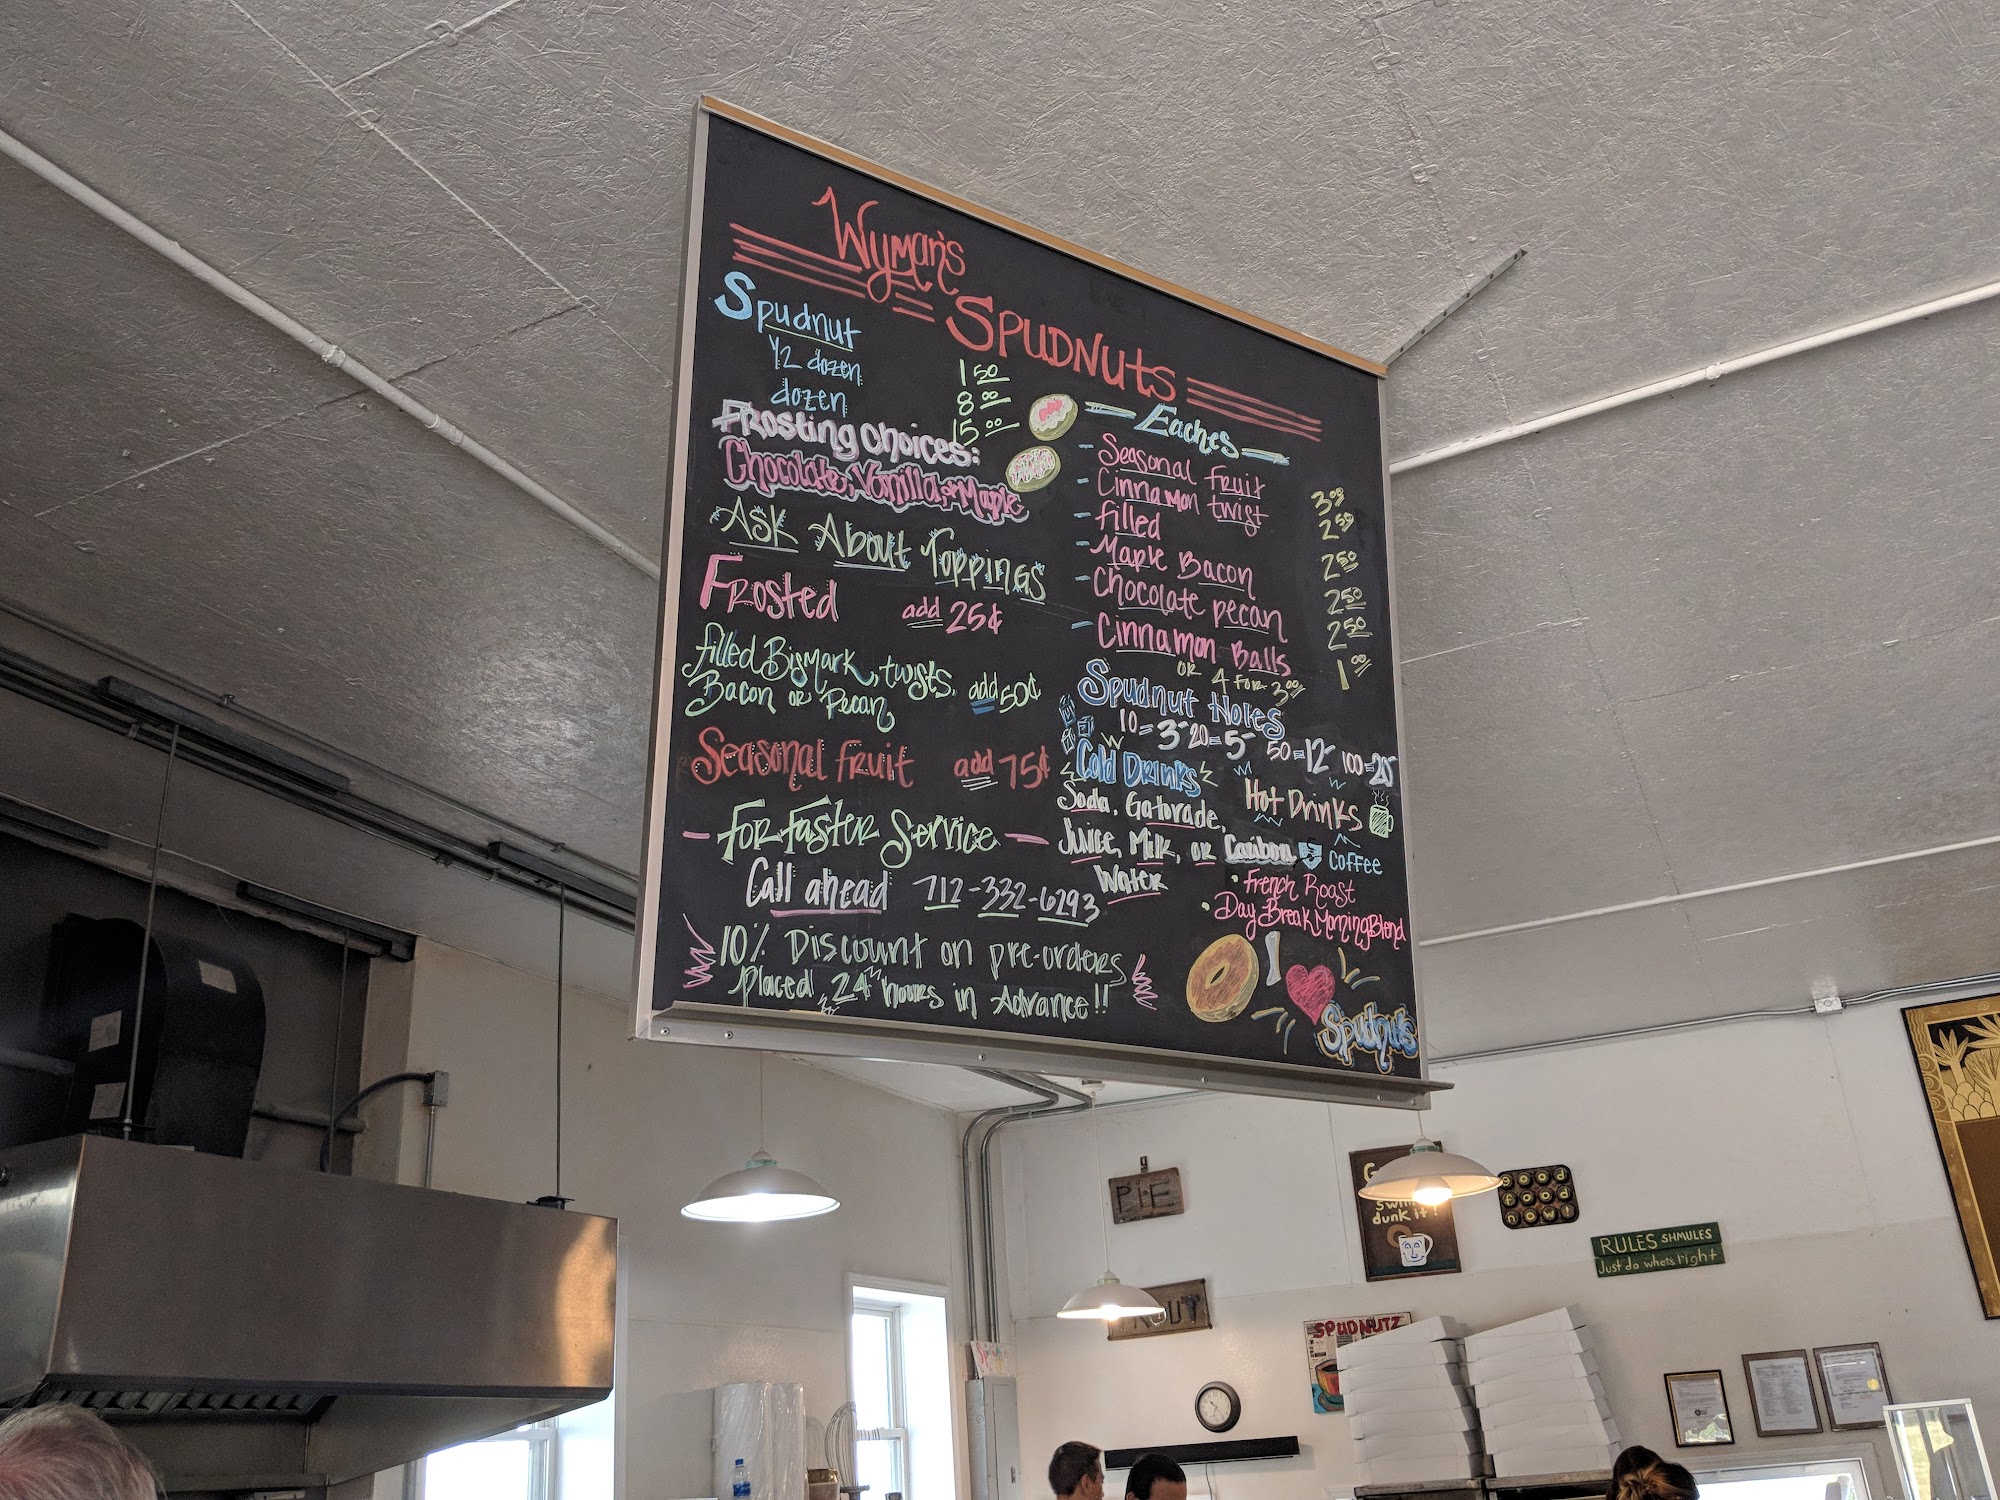 Wyman's
Spudnuts
Spudnut 1 50
1/2 dozen 8 00
dozen 15 00
Frosting Choices:
Chocolate, Vanilla, or Maple
Ask About Toppings
Frosted add 25¢
filled Bismark, twists,
Bacon or Pecan add 50¢
Seasonal Fruit add 75¢
For Faster Service
Call ahead 712-332-6293
10% Discount on pre-orders
Placed 24 hours in Advance!!
Eaches
- Seasonal Fruit 3 00
- Cinnamon twist 2 50
- filled 2 50
- Maple Bacon 2 50
- Chocolate pecan 2 50
- Cinnamon Balls 1 00
or 4 for 3 00
Spudnut Holes
10=3- 20=5- 50=12- 100=20-
Cold Drinks
Soda, Gatorade,
Juice, Milk, or
Water
Hot Drinks
Caribou Coffee
• French Roast
• DayBreak Morning Blend
I
Spudnuts
PIE
dunk it!
good
food
now!
RULES SHMULES
Just do what's right
SPUDNUTZ